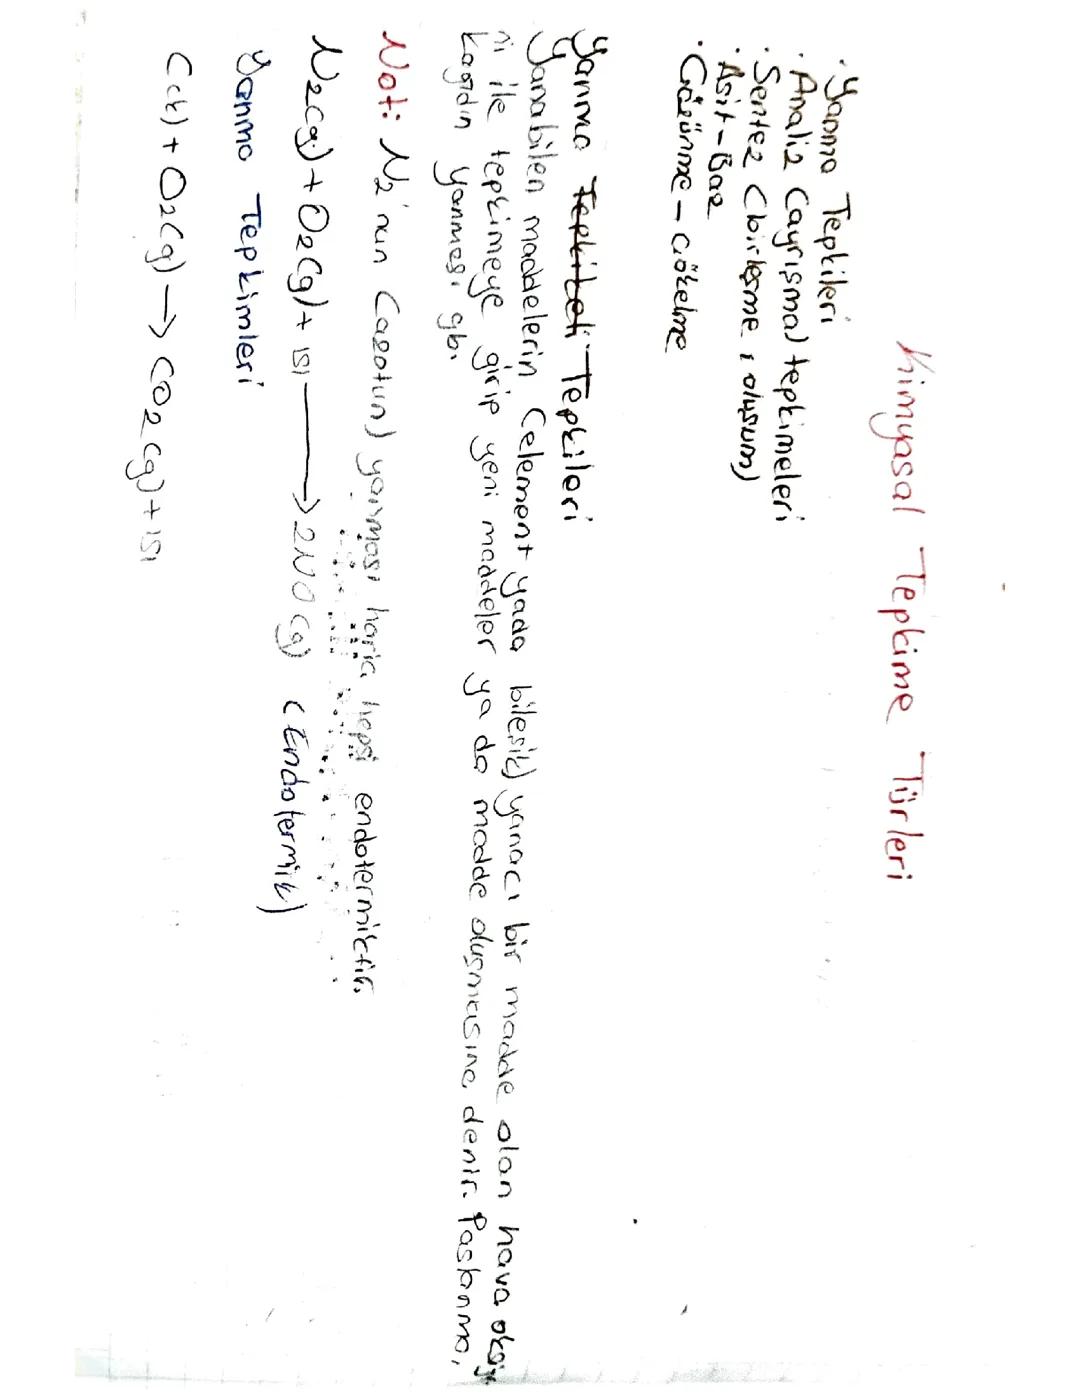 Kimyasal Tepkime Türleri
· Yanma Tepkileri
· Analiz (ayrışma) tepkimeleri
· Sentez (birleşme, oluşum)
· Asit-Baz
· Çözünme - Çökelme
Yanma Tepkileri
Yanabilen maddelerin (element yada bileşik) yanacı bir madde olan hava oksije
ni ile tepkimeye girip yeni maddeler ya da madde oluşmasına denir. Paslanma,
kağıdın yanması gb.
Not: N2'nun (azotun) yanması hariç hepsi endotermiktir.
N2(g) + O2(g) + ısı → 2NO(g) (Endotermik)
Yanma Tepkimleri
C(k) + O2(g) → CO2(g) + ısı